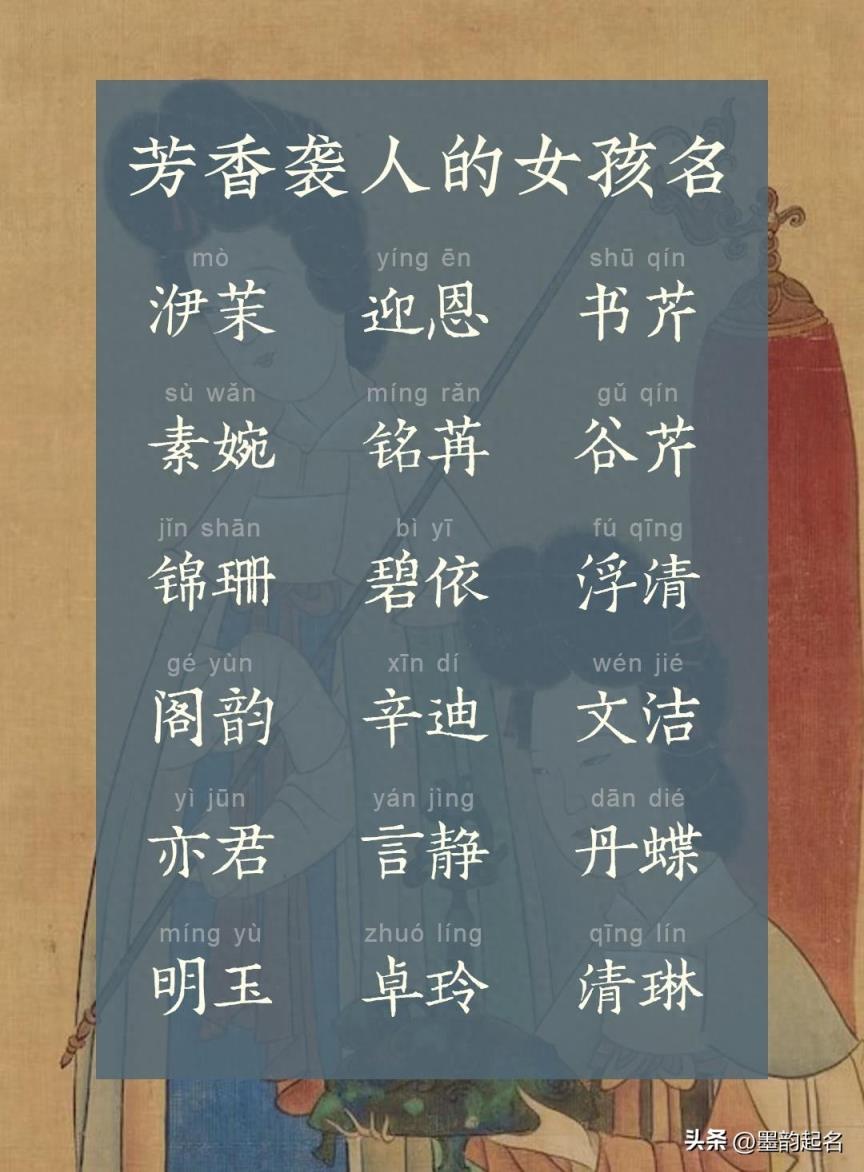 芳香袭人的女孩名
mò yíng ēn shū qín
洢茉 迎恩 书芹
sù wǎn míng rǎn gǔ qín
素婉 铭苒 谷芹
jǐn shān bì yī fú qīng
锦珊 碧依 浮清
gé yùn xīn dí wén jié
阁韵 辛迪 文洁
yì jūn yán jìng dān dié
亦君 言静 丹蝶
míng yù zhuó líng qīng lín
明玉 卓玲 清琳
头条 @墨韵起名